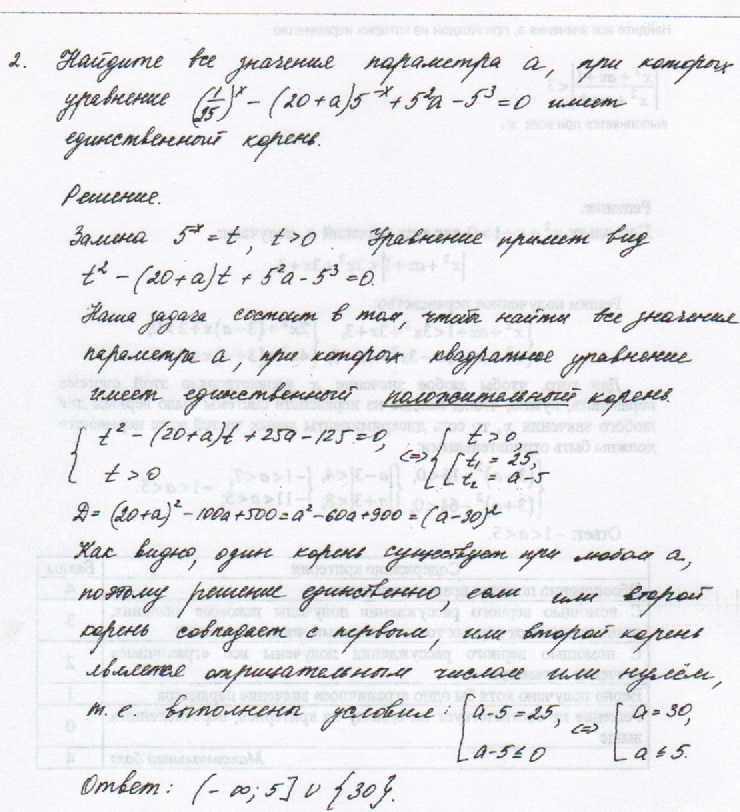 2. Найдите все значения параметра а, при которых
уравнение (1/25)^x - (20+a)5^-x + 5^2a - 5^3 = 0 имеет
единственный корень.
Решение.
Замена 5^-x = t, t>0. Уравнение примет вид
t^2 - (20+a)t + 5^2a - 5^3 = 0.
Наша задача состоит в том, чтобы найти все значения
параметра а, при которых квадратное уравнение
имеет единственный положительный корень.
{ t^2 - (20+a)t + 25a - 125 = 0, t>0 <=> { t>0, [ t1 = 25, t2 = a-5
D = (20+a)^2 - 100a + 500 = a^2 - 60a + 900 = (a-30)^2
Как видно, один корень существует при любом а,
поэтому решение единственно, если или второй
корень совпадает с первым, или второй корень
является отрицательным числом или нулём,
т.е. выполнены условия: [ a-5=25, a-5≤0 <=> [ a=30, a≤5.
Ответ: (-∞; 5] ∪ {30}.